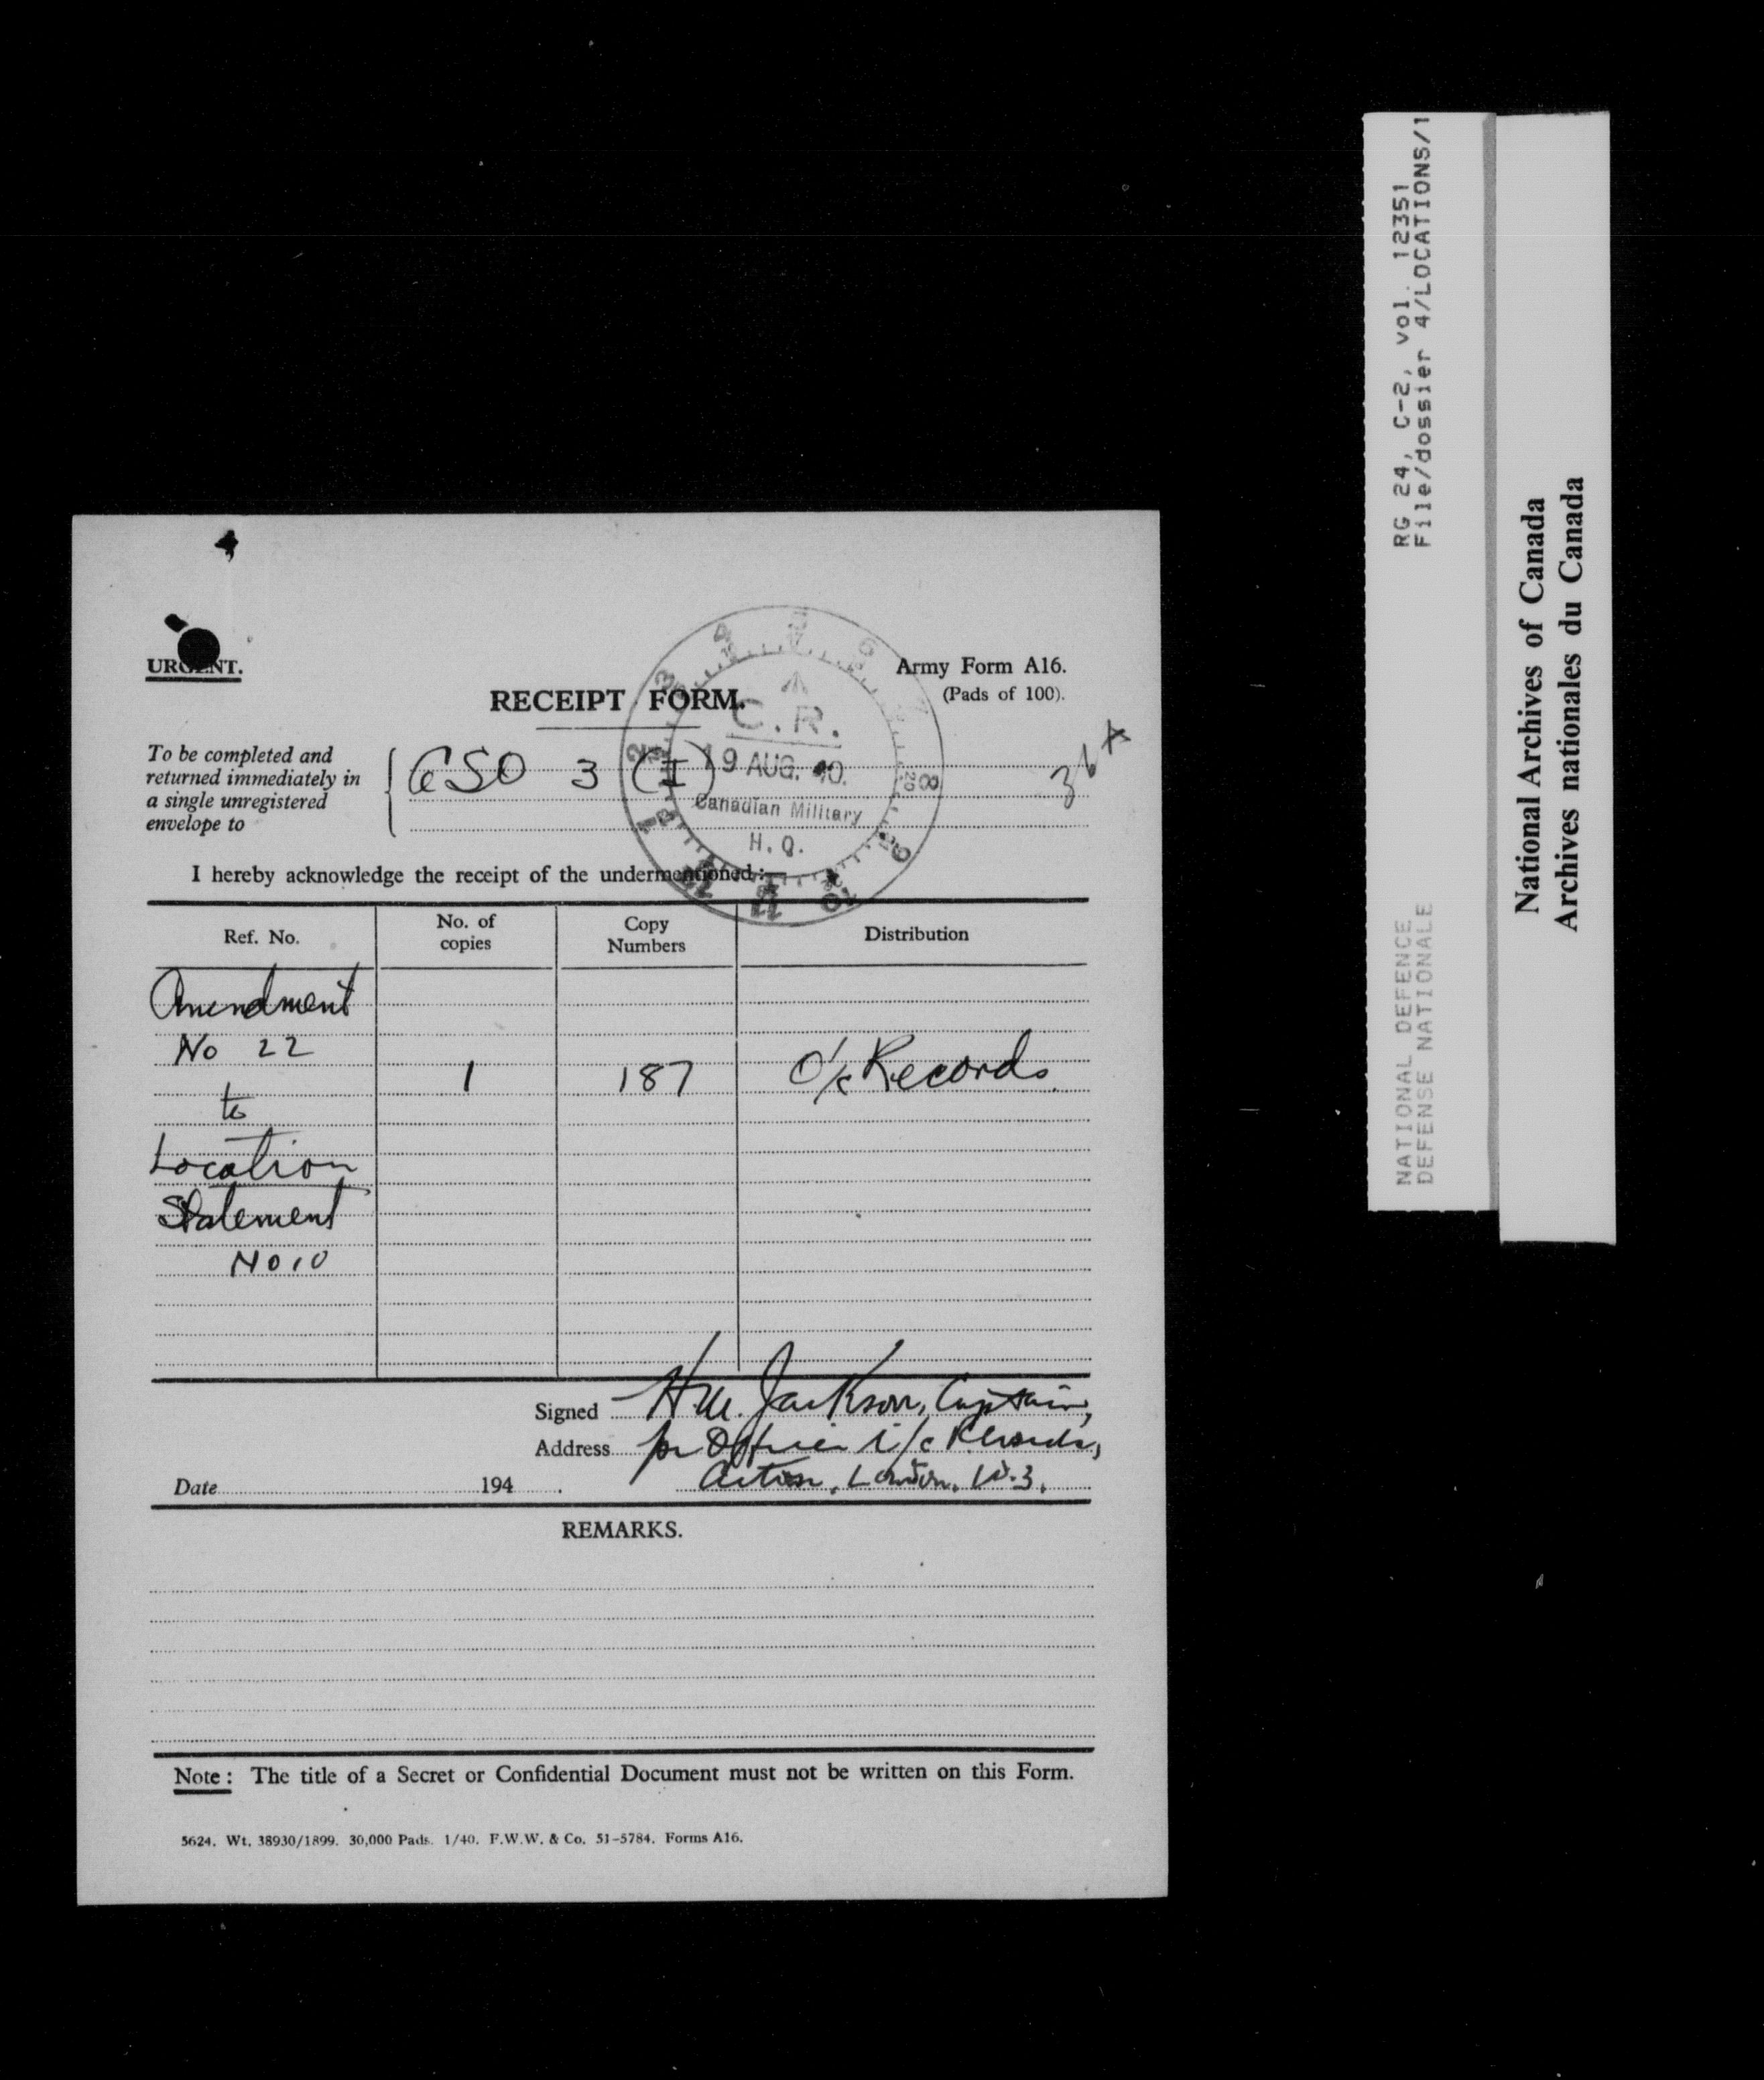 URGENT.
Army Form A16.
(Pads of 100).
RECEIPT FORM.
To be completed and
returned immediately in
a single unregistered
envelope to
GSO 3 (I)
C.R.
19 AUG. 40.
Canadian Military
H.Q.
I hereby acknowledge the receipt of the undermentioned:—
Ref. No. No. of copies Copy Numbers Distribution
Amendment
No 22
1 187 O/c Records.
to
Location
Statement
No 10
Signed H.M. Jackson, Captain,
Address for Officer i/c Records,
Acton, London, W.3.
Date 194 .
REMARKS.
Note: The title of a Secret or Confidential Document must not be written on this Form.
5624. Wt. 38930/1899. 30,000 Pads. 1/40. F.W.W. & Co. 51-5784. Forms A16.
RG 24, C-2, vol. 12351
File/dossier 4/LOCATIONS/1
NATIONAL DEFENCE
DEFENSE NATIONALE
National Archives of Canada
Archives nationales du Canada